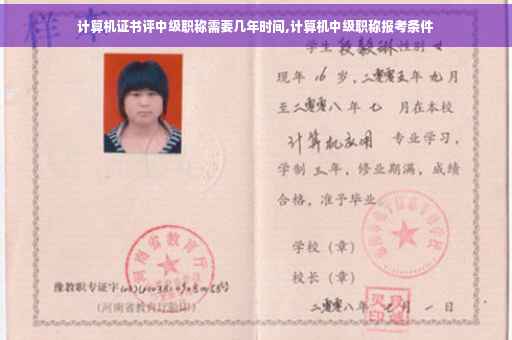 计算机证书评中级职称需要几年时间,计算机中级职称报考条件
样本
学生段毅琳性别女
现年16岁,二零零五年九月
至二零零八年七 月在本校
计算机应用 专业学习,
学制三年,修业期满,成绩
合格,准予毕业
学校(章)
校长(章)
二零零八年七月一日
河南省教育厅
豫教职专证字
(河南省教育厅验印)